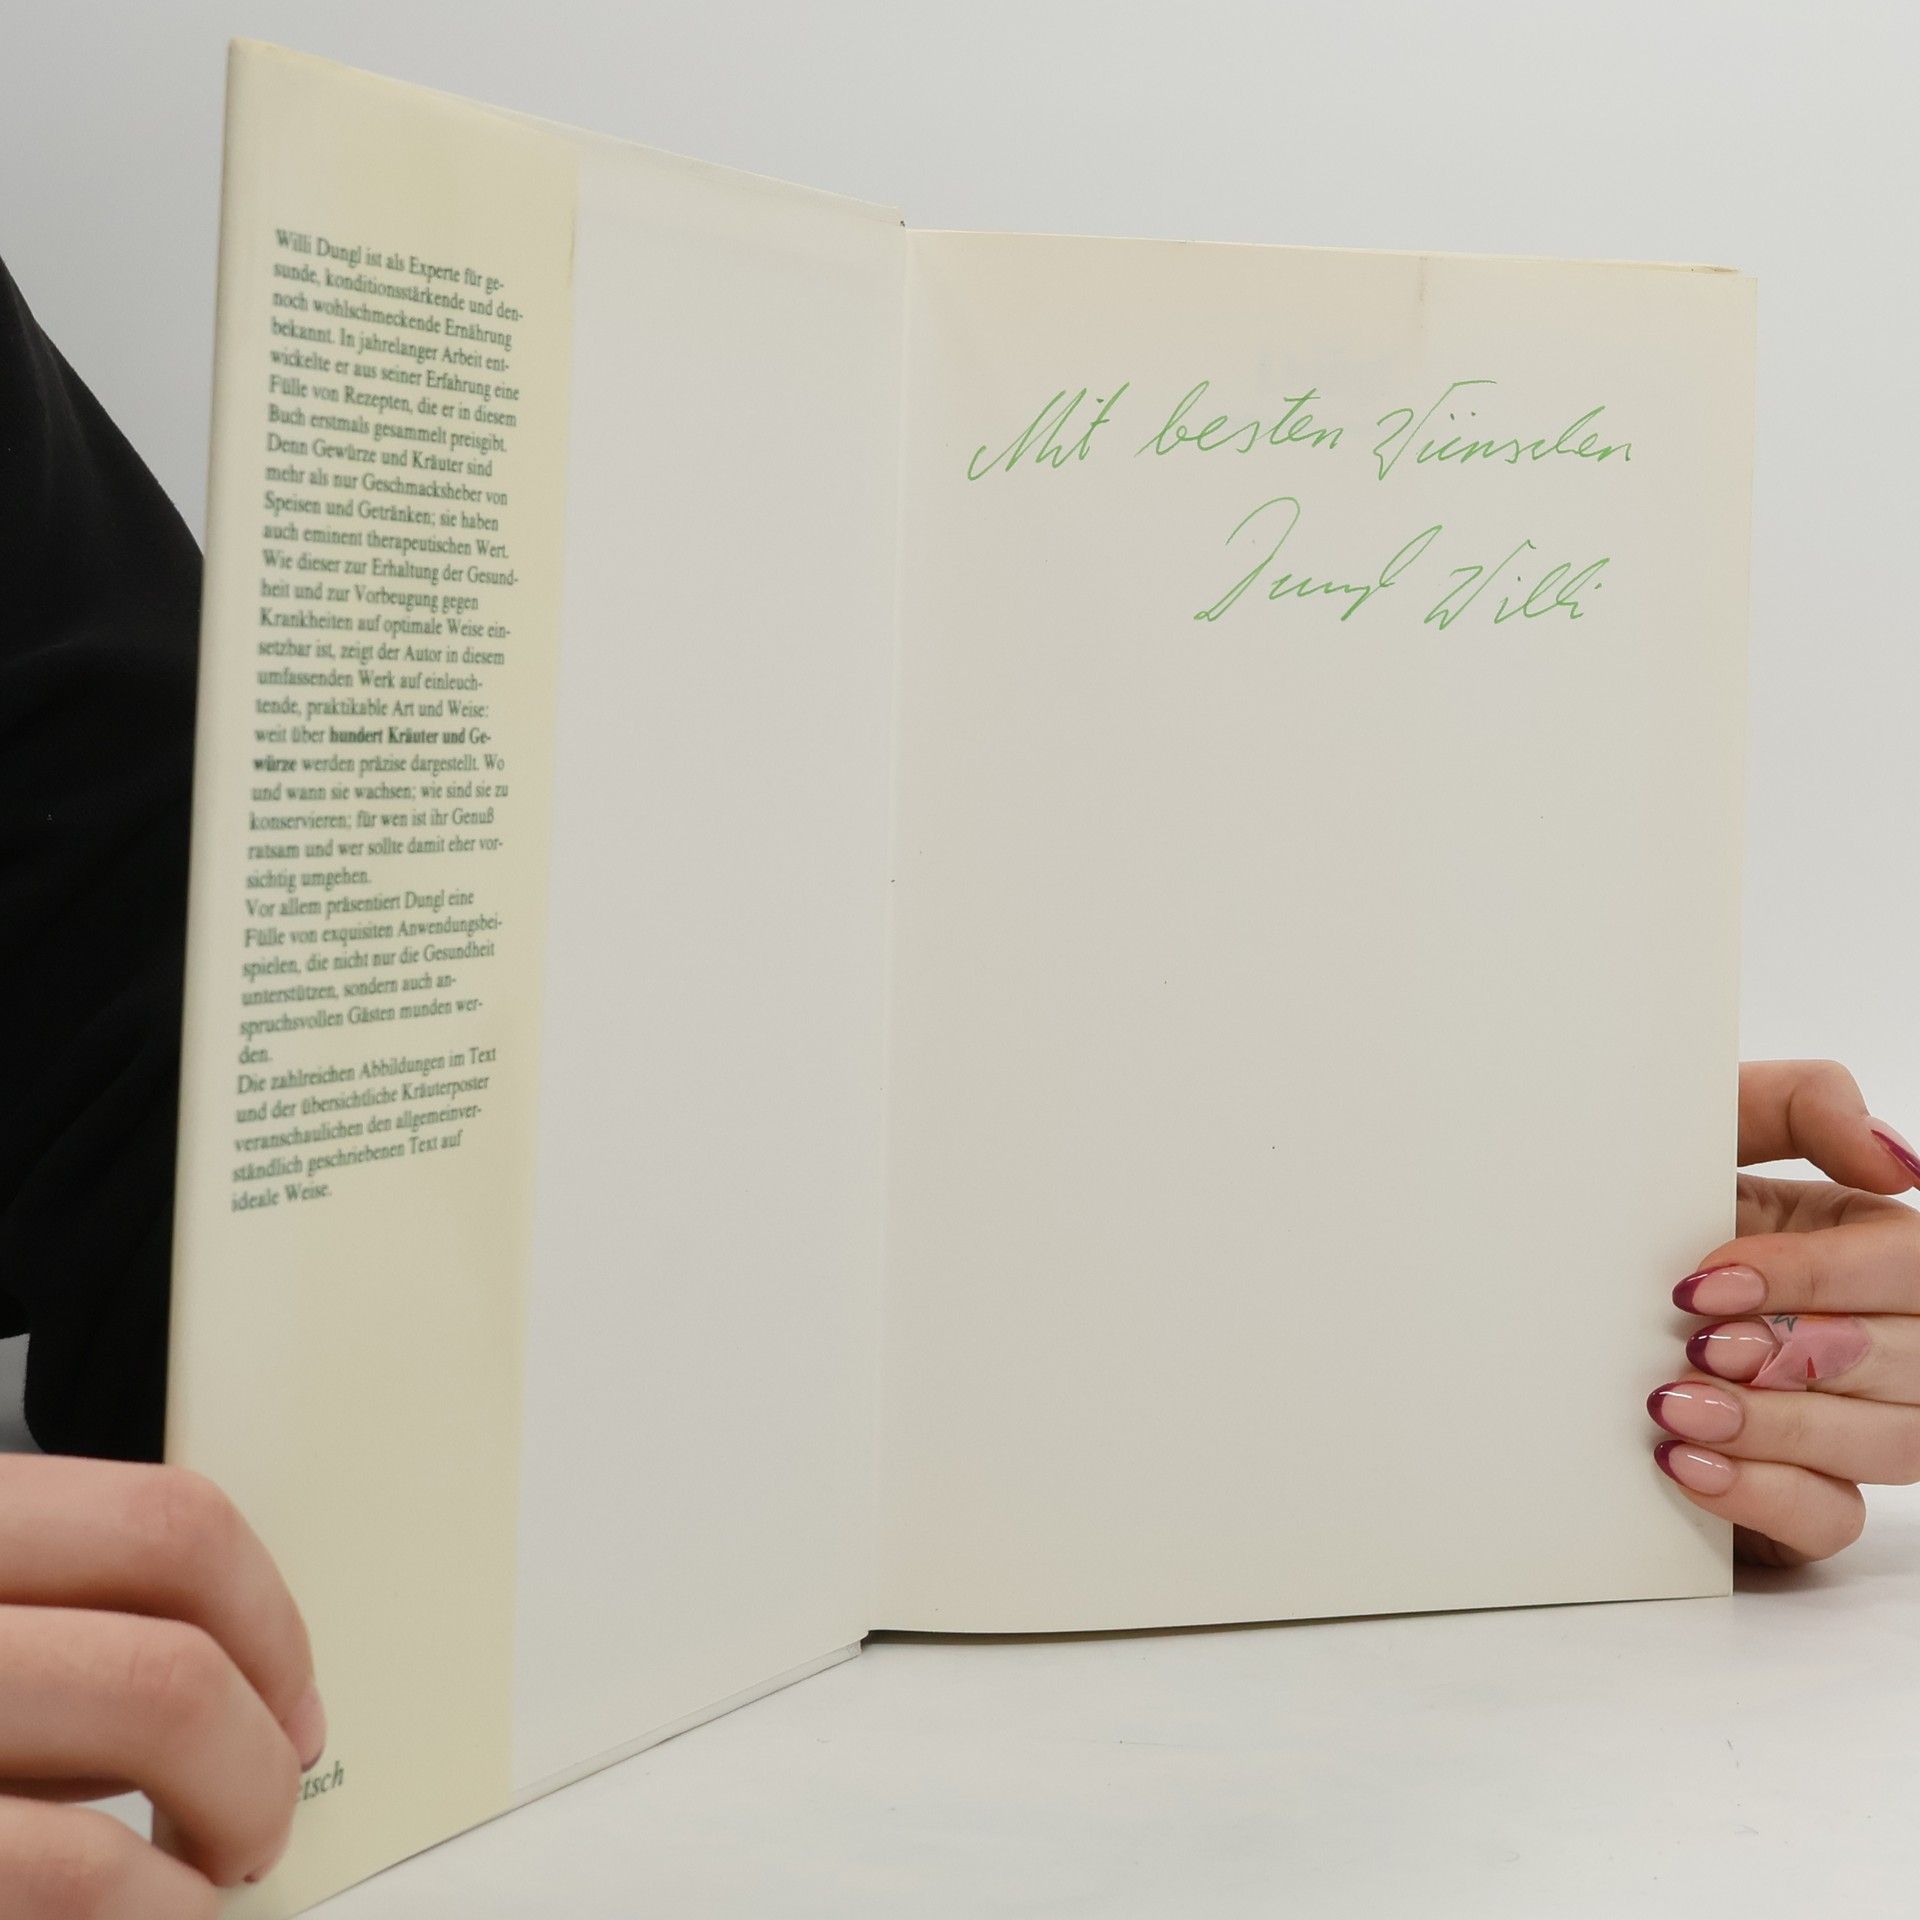 Willi Dungl ist als Experte für ge-
sunde, konditionsstärkende und den-
noch wohlschmeckende Ernährung
bekannt. In jahrelanger Arbeit ent-
wickelte er aus seiner Erfahrung eine
Fülle von Rezepten, die er in diesem
Buch erstmals gesammelt preisgibt.
Denn Gewürze und Kräuter sind
mehr als nur Geschmacksheber von
Speisen und Getränken; sie haben
auch eminent therapeutischen Wert.
Wie dieser zur Erhaltung der Gesund-
heit und zur Vorbeugung gegen
Krankheiten auf optimale Weise ein-
setzbar ist, zeigt der Autor in diesem
umfassenden Werk auf einleuch-
tende, praktikable Art und Weise:
weit über hundert Kräuter und Ge-
würze werden präzise dargestellt. Wo
und wann sie wachsen; wie sind sie zu
konservieren; für wen ist ihr Genuß
ratsam und wer sollte damit eher vor-
sichtig umgehen.
Vor allem präsentiert Dungl eine
Fülle von exquisiten Anwendungsbei-
spielen, die nicht nur die Gesundheit
unterstützen, sondern auch an-
spruchsvollen Gästen munden wer-
den.
Die zahlreichen Abbildungen im Text
und der übersichtliche Kräuterposter
veranschaulichen den allgemeinver-
ständlich geschriebenen Text auf
ideale Weise.
etsch
Mit besten Wünschen
Dungl Willi